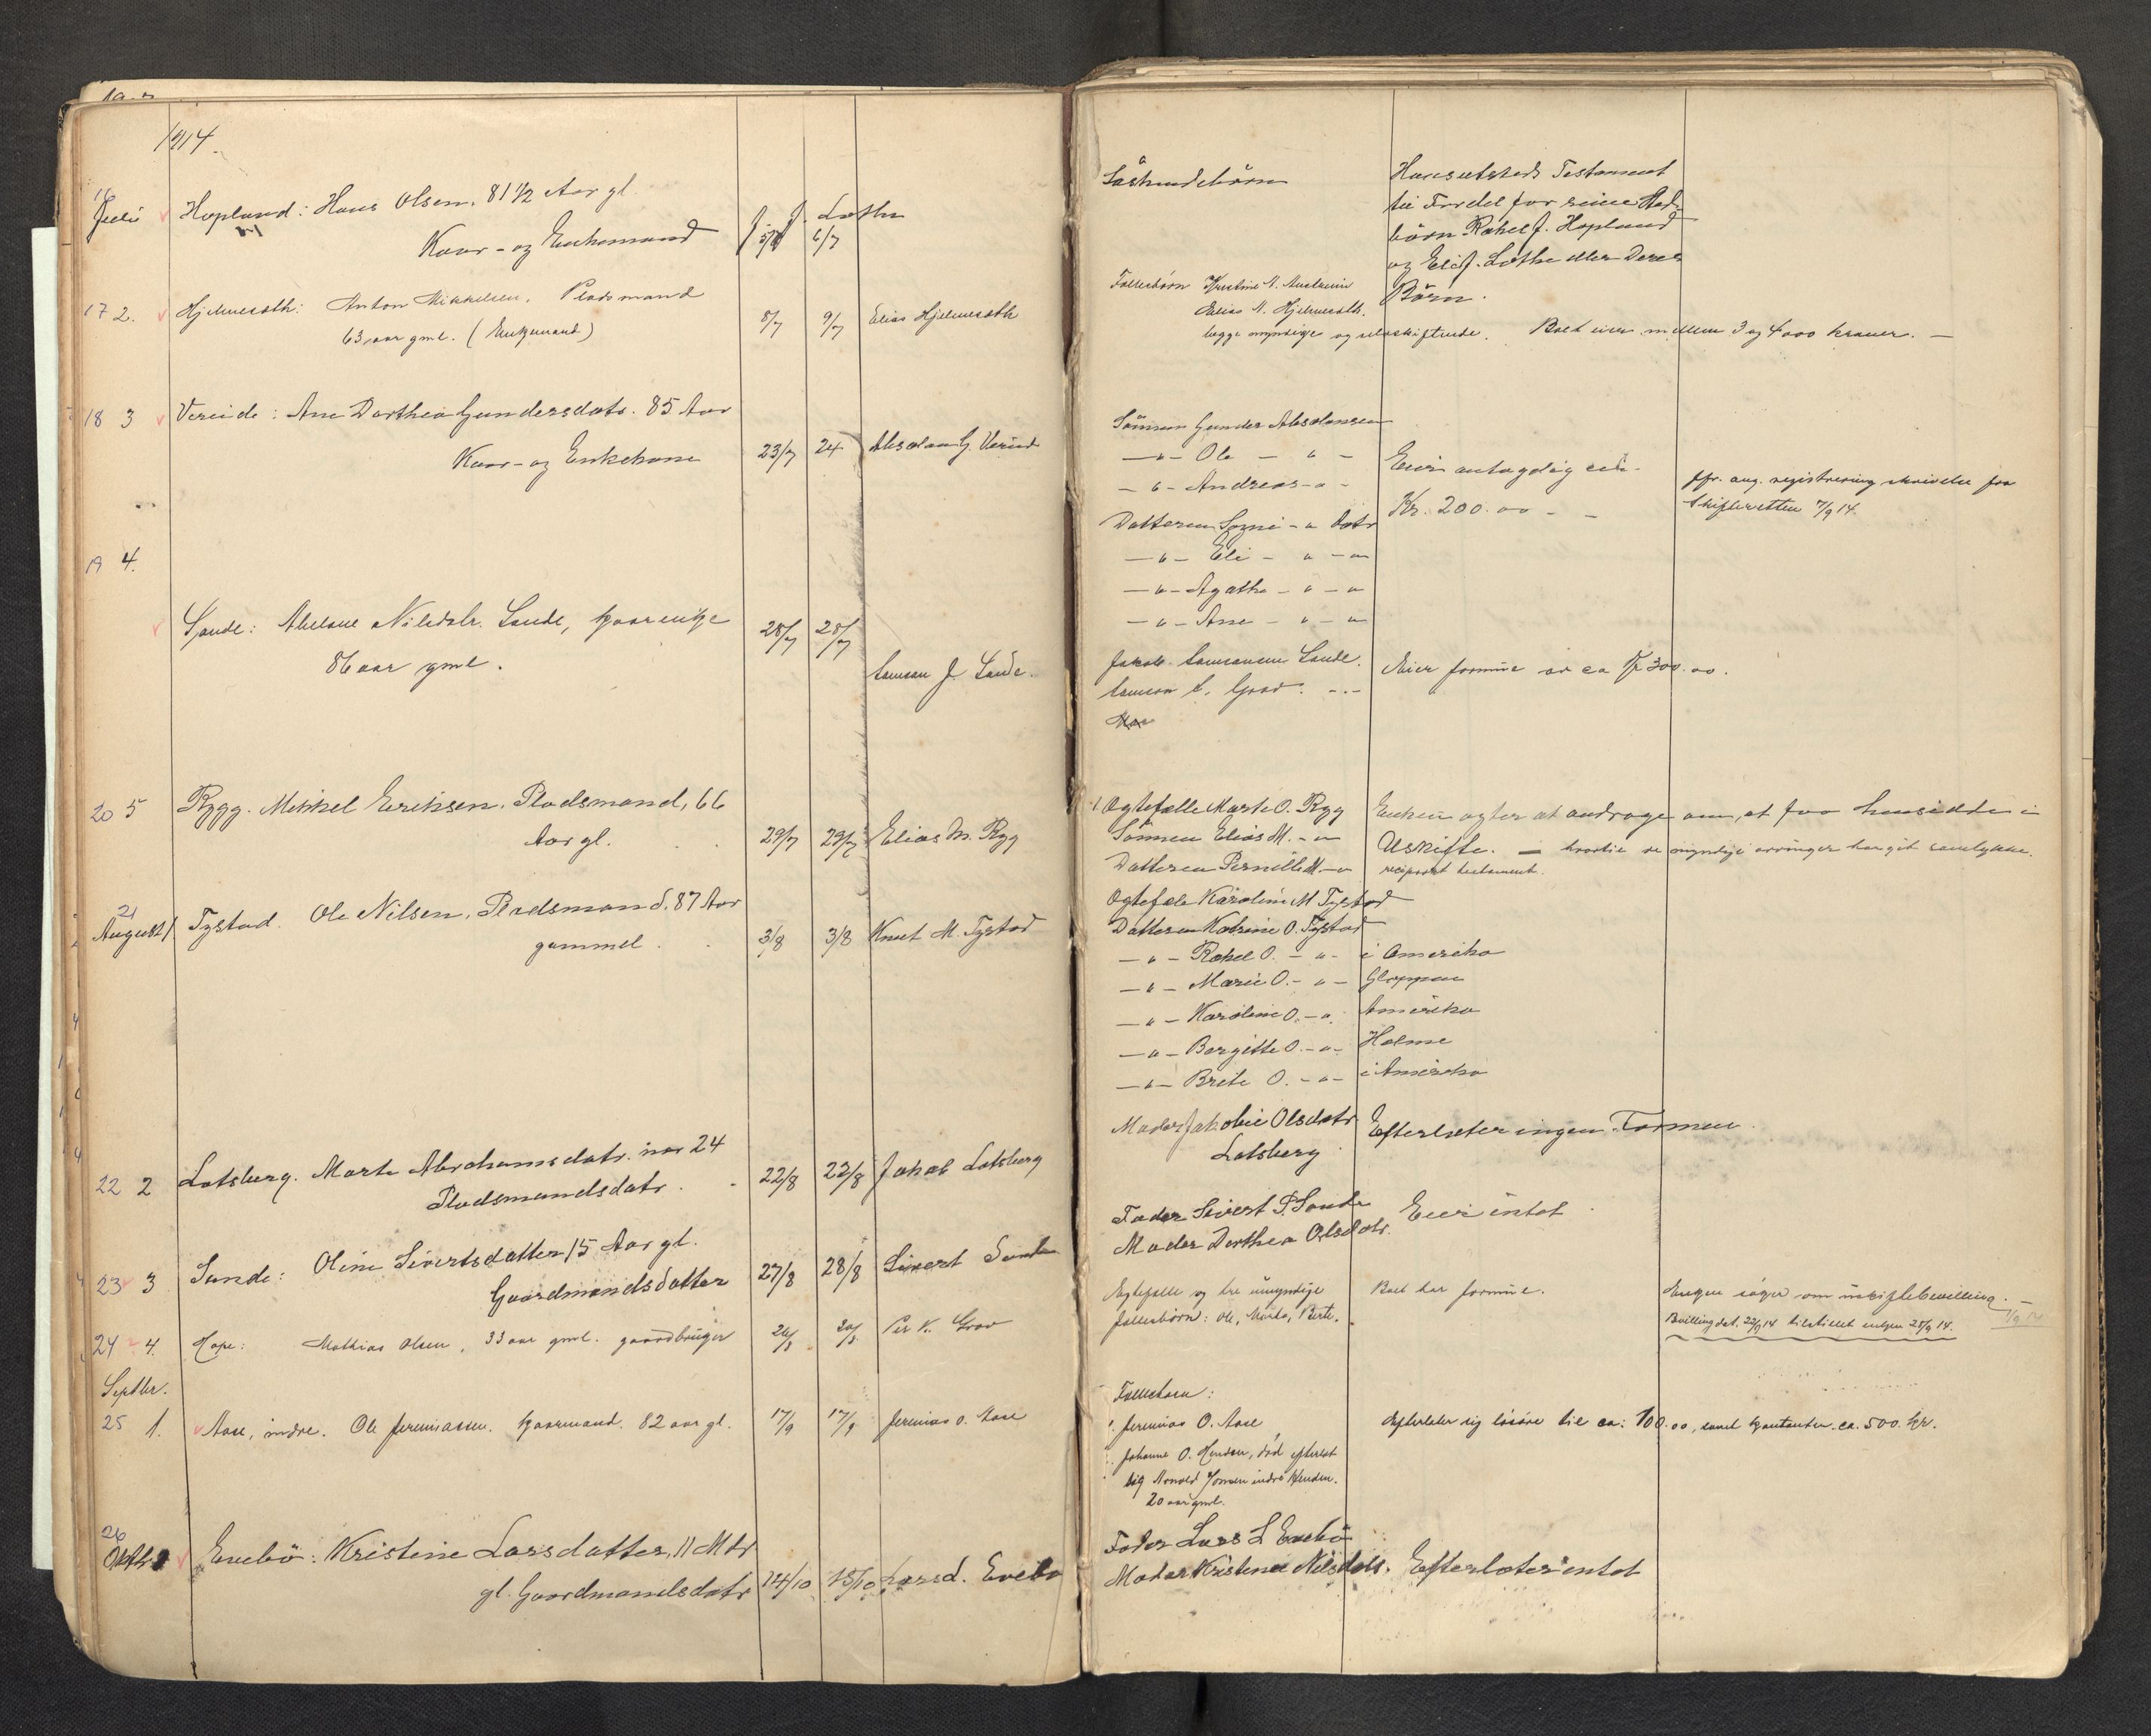 1914.
16
Juli Hopland: Hans Olsen, 81 1/2 Aar gl.
Kaar- og Enkemand 5/7 6/7 J. J. Lothe
17 2. Hjelmeseth: Anton Mikkelsen. Pladsmand
63 aar gml. (Enkemand) 8/7 9/7 Elias Hjelmeseth
18 3 Vereide: Ane Dorthea Gundersdatr. 85 Aar
Kaar- og Enkekone 23/7 24 Absalon G. Vereid
19 4.
Sande: Abelone Nilsdatr. Sande, kaarenke
86 aar gml. 28/7 28/7 Samson J. Sande.
20 5 Rygg. Mikkel Eriksen. Pladsmand, 66
Aar gl. 29/7 29/7 Elias M. Rygg
21
August 1 Tystad. Ole Nilsen, Pladsmand. 87 Aar
gammel. 3/8 3/8 Knut M. Tystad
22 2 Lotsberg. Marte Abrahamsdatr. 24
Pladsmandsdatr. 22/8 22/8 Jakob Lotsberg
23 3 Sande: Oline Sivertsdatter 15 Aar gl.
Gaardmandsdatter 27/8 28/8 Sivert Sande
24 4. Hope: Mathias Olsen, 33 aar gml. gaardbruger Per K. Grov
Septbr.
25 1. Aase, indre. Ole Jeremiassen. kaarmand. 82 aar gl. 17/9 17/9 Jeremias O. Aase
26
Oktbr 1 Evebö: Kristine Larsdatter, 11 Mdr
gl. Gaardmandsdatr 14/10 15/10 Evebö
Söskendebörn
Testament
til Fordel for sine
börn Rakel J. Hopland
og Eli J. Lothe eller Deres
Börn.
Fællesbörn Kristine A.
Elias A. Hjelmeseth.
begge myndige og selvskiftende. Boet eier mellem 3 og 4000 kroner. —
Sönnen Gunder Absalonsen
—"— Ole — " —
—"— Andreas — " —
Datteren Sogni — " datr
—"— Eli — " — "
—"— Agathe — " — "
—"— Ane — " — "
Eier antagelig
Kr. 200.00 — —
Jfr. ang. registrering skrivelse fra
Skifteretten 7/9 14.
Jakob Samsonsen Sande.
Samson S. Grov. — " —
Eier formue av ca Kr 300.00.
Ægtefælle Marte O. Rygg
Sönnen Elias M. — "
Datteren Pernille M — "
Enken agter at andrage om, at faa hensidde i
Uskifte. — hvortil de myndige arvinger har git samtykke.
reciprokt testament.
Ægtefæle Karoline M Tystad
Datteren Katrine O. Tystad
—"— Rakel O. — " — i Amerika
—"— Marie O. — " — Gloppen
—"— Karoline O. — " Amerika
—"— Bergitte O. — " — Holme
—"— Brite O. — " — i Amerika
Moder Jakobie Olsdatr
Lotsberg
Efterlater ingen Formue.
Fader Sivert P. Sande
Moder Dorthea Olsdatr.
Eier intet
Ægtefælle og tre umyndige
fællesbörn: Ole, Marta, Berte.
Boet har formue.
Enken söger om uskiftebevilling. —
Bevilling dat. 22/9 14 tilstillet enken 28/9 14.
Fællesbörn:
1. Jeremias O. Aase
2. Johanne O. Henden, död efterlat
sig Arnold Jonsen indre Henden.
20 aar gml.
Efterlater sig lösöre til ca: 100.00, samt kontanter ca. 500 kr.
Fader Lars L Evebö
Moder Kristine Nilsdatr.
Efterlater intet